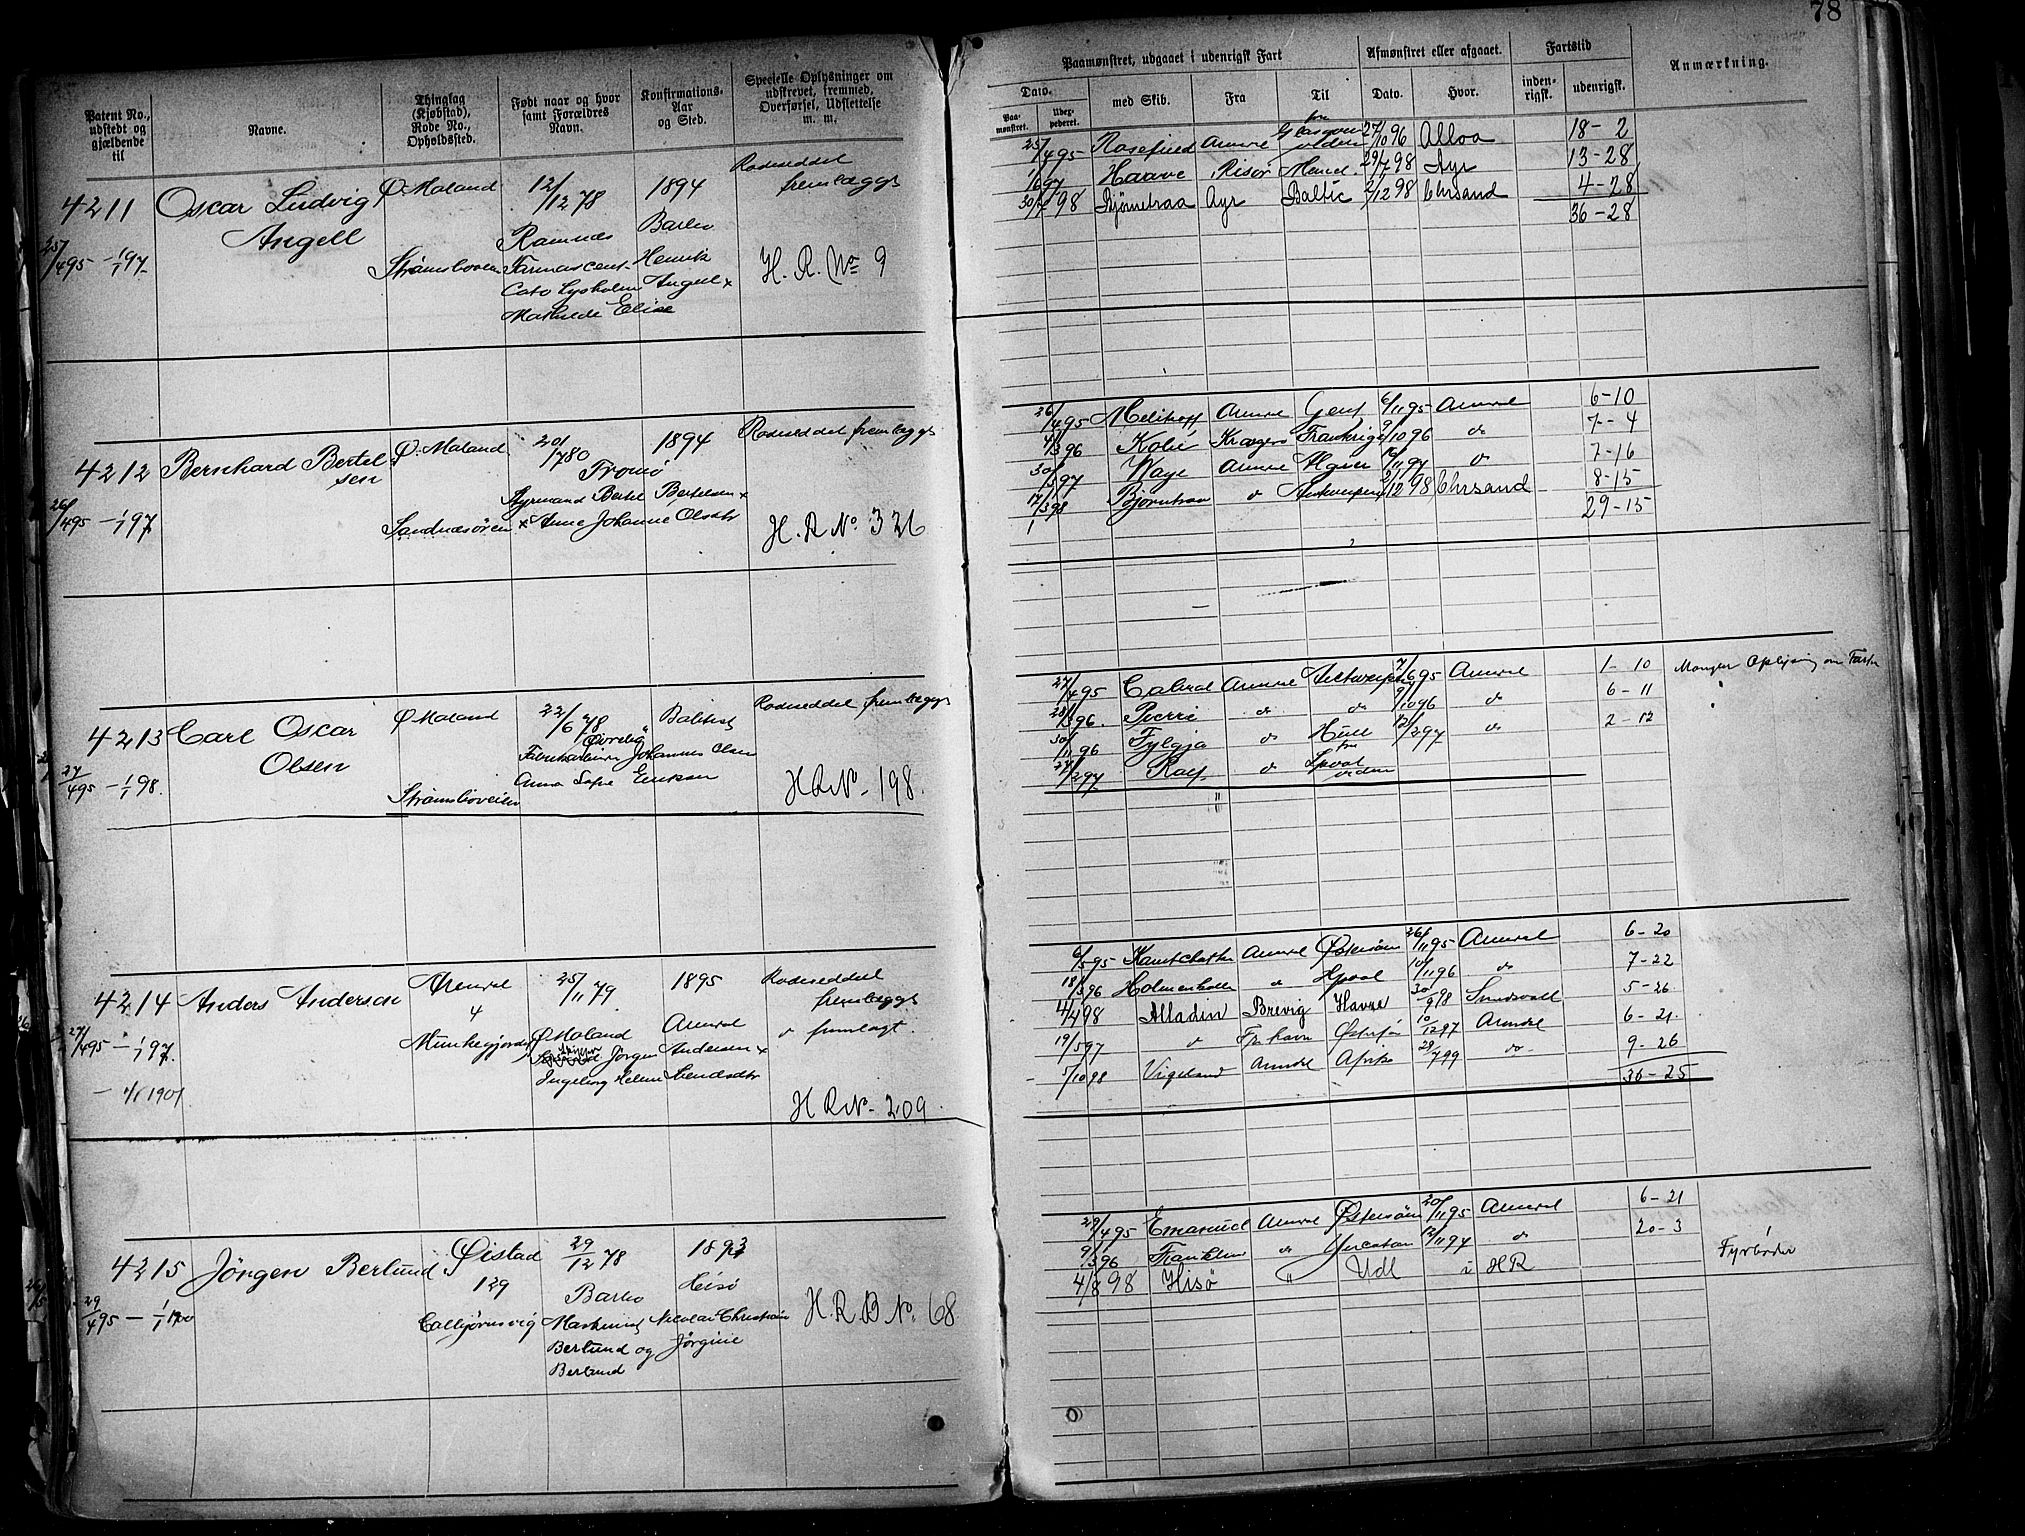 78
Patent No., udstedt og gjældende til
Navne.
Thinglag (Kjøbstad), Rode No., Opholdssted.
Født naar og hvor samt Forældres Navn.
Konfirmations- Aar og Sted.
Specielle Oplysninger om udskrevet, fremmed, Overførsel, Udslettelse m. m.
Paamønstret, udgaaet i udenrigsk Fart
Afmønstret eller afgaaet.
Fartstid
Anmærkning.
Dato.
Paa- mønstret.
Udex- pederet.
med Skib.
Fra
Til
Dato.
Hvor.
inden- rigsk.
udenrigsk.
4211 Oscar Ludvig Angell
25/4 95 – 1/1 97.
Ø. Moland
Strømsboveien
12/12 78
Ramnæs
Farmaceut
Cato Lysholm Angell x
Mathilde Elise
1894
Barbo
Henrik
Rodeseddel fremlagt
H. R. No 9
25/4 95 Rosefield Arendal Glasgow 27/10 96 Alloa 18 – 2
1/6 97 Haave Risør 29/7 98 Ayr 13 – 28
98 Bjørnetraa Ayr Baltic 2/12 98 Chrsand 4 – 28
36 – 28
4212 Bernhard Bertelsen
26/4 95 – 1/1 97
Ø. Moland
Sandnæsøren
20/7 80
Tromø
Styrmand Bertel Bertelsen x
x Anne Johanne Olsdtr
1894
Rodeseddel fremlagt
H. R No. 326
26/4 95 Melikoff Arendal Genf 6/11 95 Arendal 6 – 10
4/3 96 Kragerø Frankrige 9/10 96 do 7 – 4
30/3 97 Waye Arendal 97 do 7 – 16
17/3 98 Bjørntraa do Antwerpen 2/12 98 Chrsand 8 – 15
29 – 15
4213 Carl Oscar Olsen
27/4 95 – 1/1 98.
Ø Moland
Strømsboveien
22/6 78
Johannes Olsen
Anna Sofie Eriksen
Baptist
Rodeseddel fremlagt
H R N. 198.
27/4 95 Cabral Arendal Antwerpen 7/6 95 Arendal 1 – 10 Mangler Oplysning om Farten
28/3 96. Pierre do do 9/10 96 do 6 – 11
30/11 96 Fylgja do Hull 12/2 97 do 2 – 12
27/2 97 Ralf do
4214 Anders Anderson
27/4 95 – 1/1 97.
– 1/1 1901
Arendal
4
Munkegjorden
25/11 79
Ø Moland
Jörgen Andersen x
Ingeborg Helene Svendsdtr
1895
Arendal
Rodeseddel fremlagt
do fremlagt.
H R N. 209.
6/5 95 Kamtchatka Arendal Østersøen 26/11 95 Arendal 6 – 20
18/3 96 Holmenkollen do Hpool 10/11 96 do 7 – 22
4/4 98 Alladin Brevig Havre 30/9 98 Sundsvall 5 – 26
19/5 97 do Frhavn Østersjø 10/12 97 Arendal 6 – 21.
5/10 98 Vigeland Arendal Afrika 28/7 99 do 9 – 26
36 – 25
4215 Jörgen Berlund
29/4 95 – 1/1 1900
Øistad
129
Colbjørnsvig
29/12 78
Barbo
Maskinist Nicolai Christian
Berlund og Jörgine
Berlund
1893
Hisø
H. R. B No. 68
29/4 95 Emanuel Arendal Østersøen 20/11 95 Arendal 6 – 21
9/3 96 Franklin do Yucatan 12/11 97 do 20 – 3
4/8 98 Hisö " Udl i HR
Fyrbøder